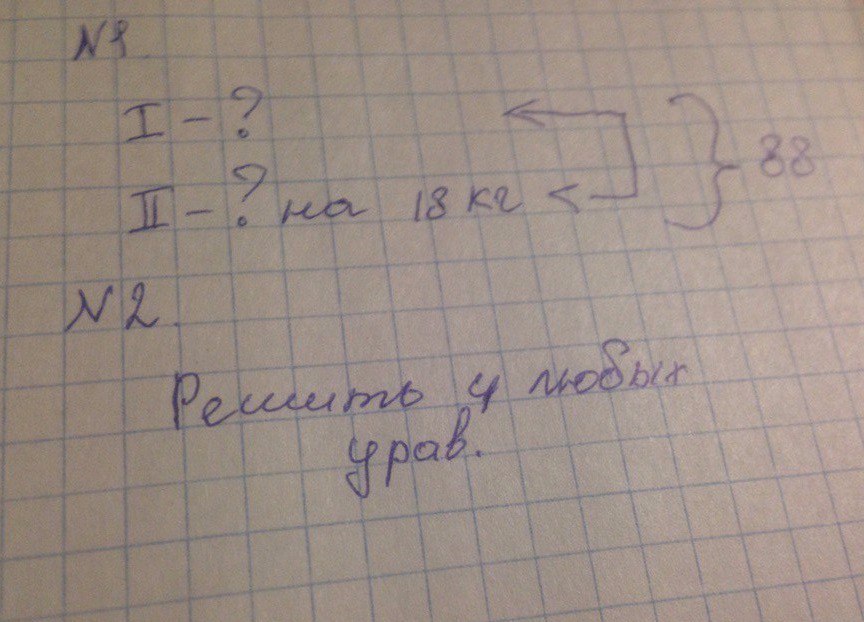 №1
I – ?
II – ? на 18 кг <
} 88
№2.
Решить 4 любых
урав.